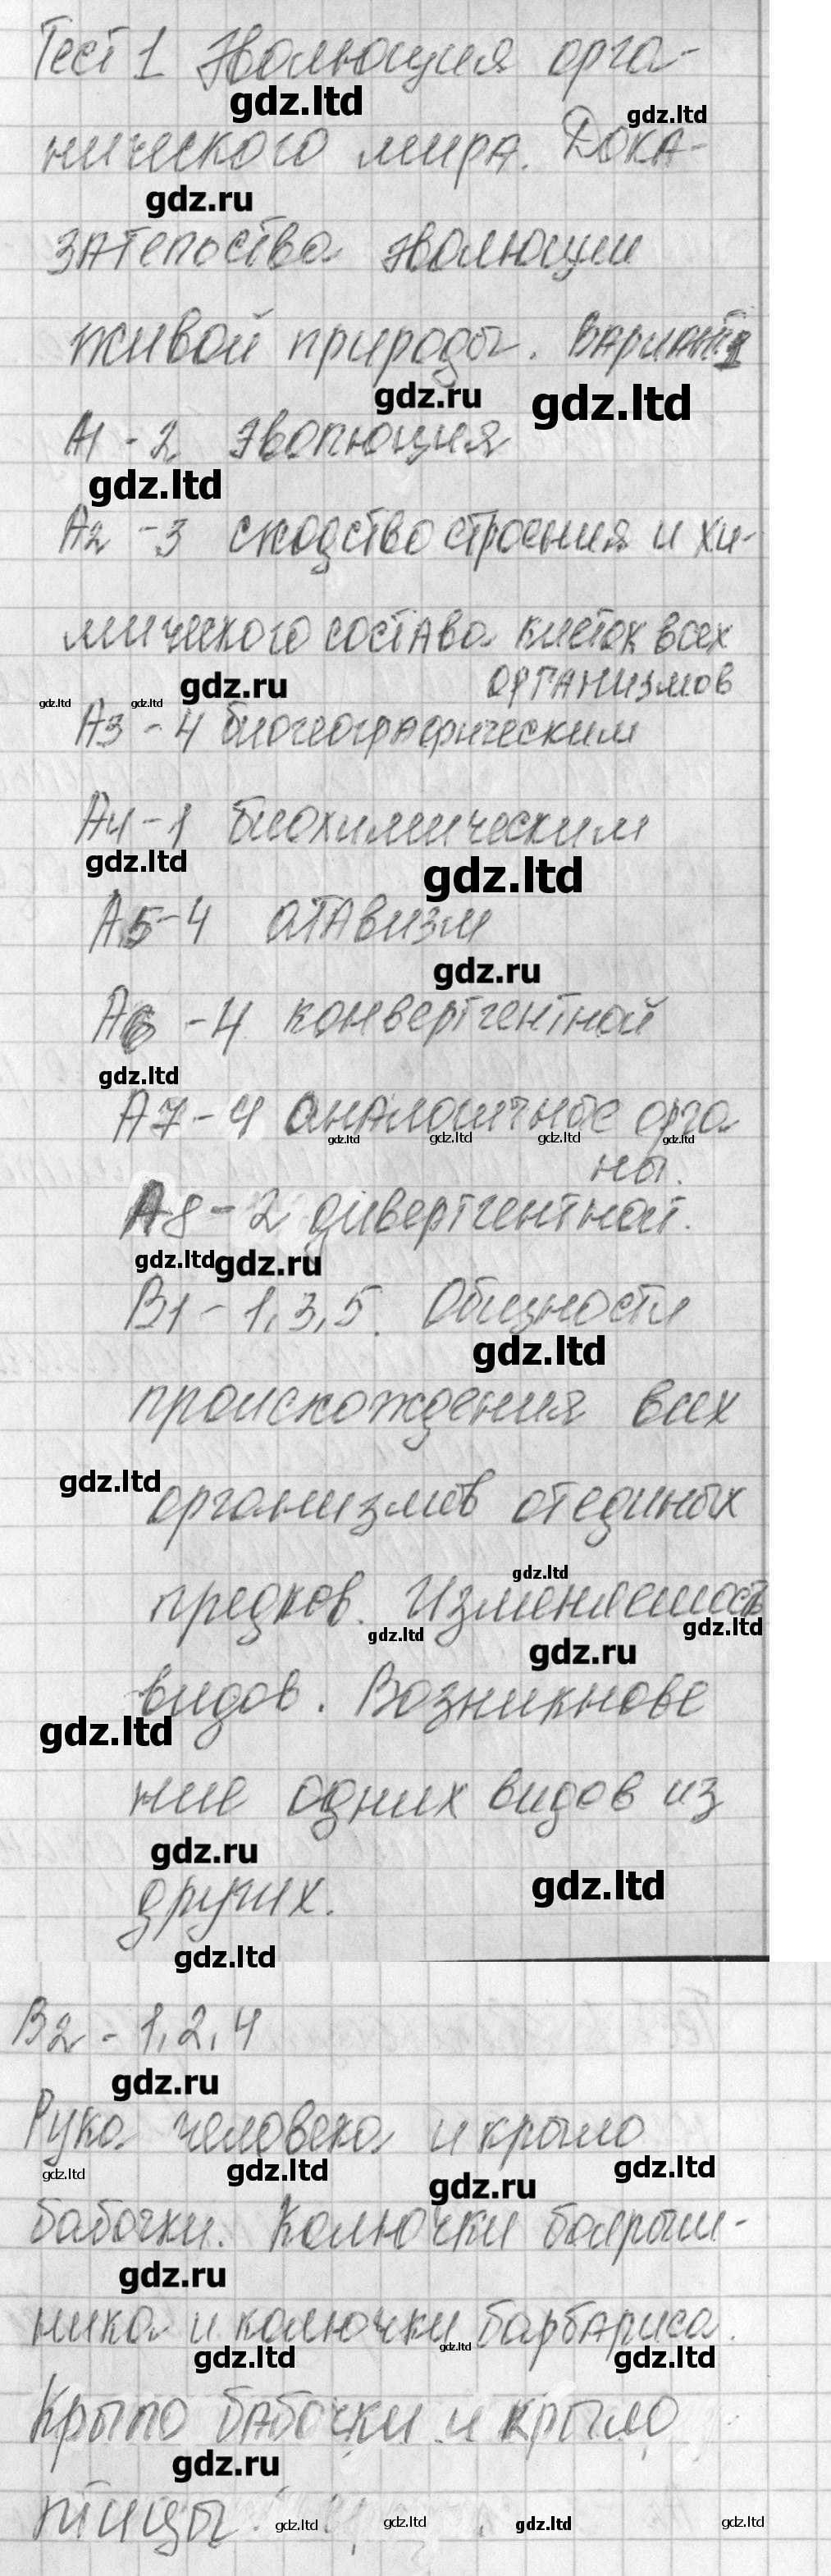 Тест 1 Эволюция орга-
gdz.ltd
gdz.ltd
нического мира. Дока-
gdz.ru
зательства эволюции
живой природы. Вариант 1
gdz.ru gdz.ltd
А1 - 2 Эволюция
gdz.ltd
А2 - 3 сходство строения и хи-
мического состава клеток всех
организмов
gdz.ru
gdz.ltd gdz.ltd
А3 - 4 биогеографическим
А4 - 1 биохимическим
gdz.ltd gdz.ltd
А5 - 4 атавизм
gdz.ru
А6 - 4 конвергентной
gdz.ltd
А7 - 4 аналогичные орга
gdz.ltd gdz.ltd gdz.ltd gdz.ltd
ны.
А8 - 2 дивергентной.
gdz.ltd gdz.ru
В1 - 1, 3, 5. Общности
gdz.ltd
происхождения всех
gdz.ltd
организмов от единых
gdz.ltd
предков. Изменяемость
gdz.ltd gdz.ru gdz.ltd
видов. Возникнове
gdz.ltd
ние одних видов из
gdz.ru
gdz.ltd
других.
gdz.ltd
В2 - 1, 2, 4
gdz.ru
Рука человека и крыло
gdz.ltd gdz.ltd gdz.ru gdz.ltd
бабочки. Колючки боярыш-
gdz.ru
ника и колючки барбариса.
gdz.ltd gdz.ltd gdz.ltd
Крыло бабочки и крыло
gdz.ru
птицы.
gdz.ltd gdz.ltd gdz.ltd gdz.ltd